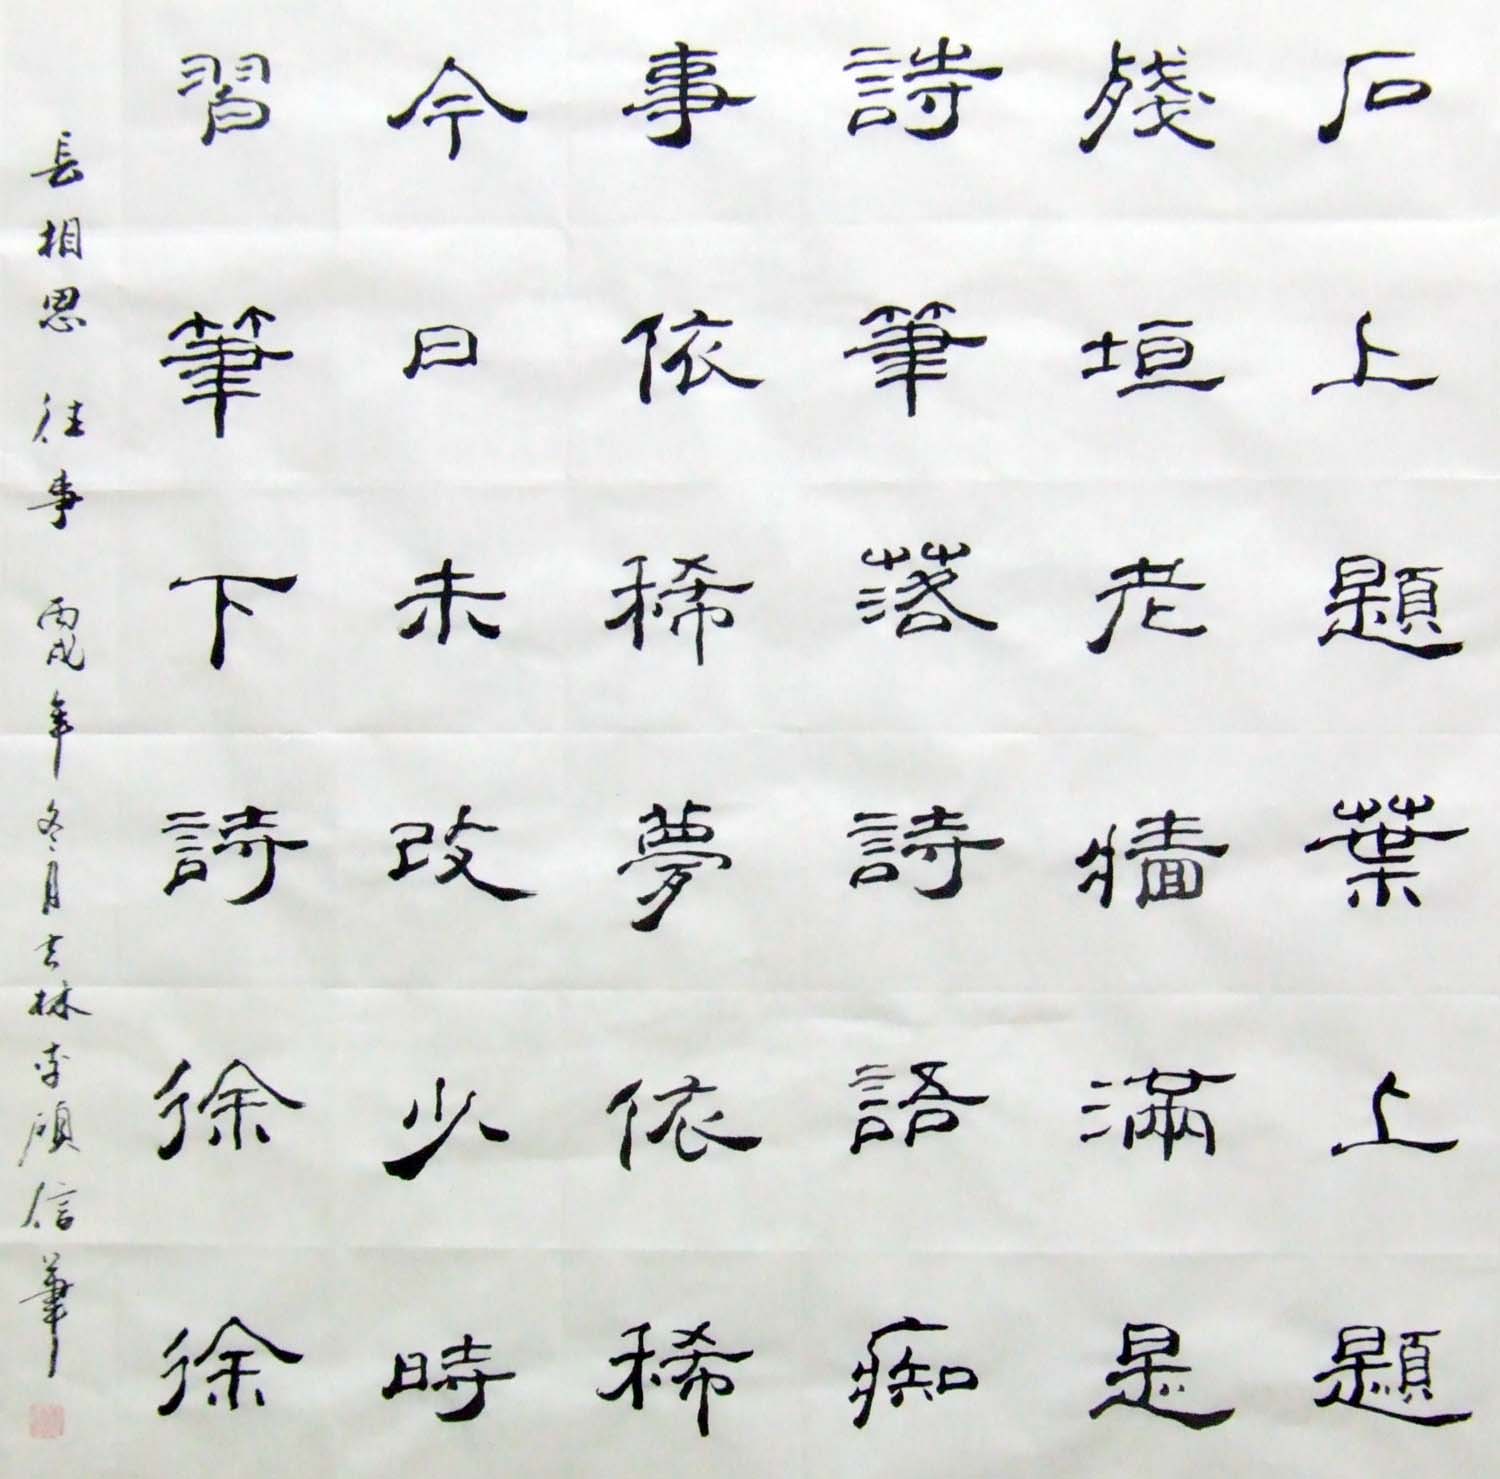 石上題葉上題
殘垣老牆滿是
詩筆落詩語痴
事依稀夢依稀
今日未改少時
習筆下詩徐徐
長相思 往事 丙戌年冬月吉林李碩信筆